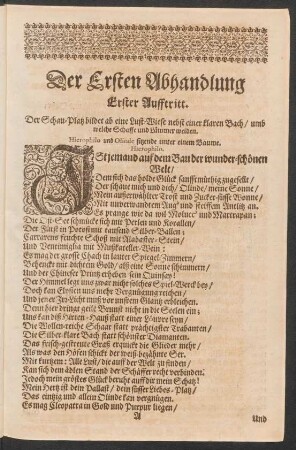 Der Ersten Abhandlung
Erster Aufftritt.
Der Schau-Platz bildet ab eine Lust-Wiese nebst einer klaren Bach/ und
welche Schaffe und Lämmer weiden.
Hierophilo und Olinde sitzende unter einem Baume.
Hierophilo.
Ist jemand auf dem Ban der wunder-schönen
Welt/
Dem sich das holde Glück sanfftmüthig zugesellt/
Der schaue mich und dich/ Olinde/ meine Sonne/
Mein außerwöhlter Trost und Zucker-süsse Wonne/
Mit unverwandtem Aug' und steiffem Antlitz an.
Es prange wie da wil Molucc' und Martrapan:
Die Ost-See schmückt sich mit Perlen und Korallen/
Der Fürst in Potosi mit tausend Silber-Ballen/
Carravens feuchte Schoß mit Alabaster-Stein/
Und Ventimiglia mit Muskateller-Wein;
Es mag der grosse Chach in lauter Spiegel-Zimmern/
Behenckt mit dichtem Gold/ als eine Sonne schimmern/
Und der Chineser Printz erheben sein Quinsay!
Der Himmel legt uns zwar nicht solches Spiel-Werck bey/
Doch kan Elysien uns mehr Vergnügung reichen/
Und jener Irr-Licht muß vor unsrem Glantz erbleichen.
Denn hier dringt geile Brunst nicht in die Seelen ein;
Uns kan das Herren-Hauß statt einer Louvre seyn/
Die Wollen-reiche Schaar statt prächtigster Trabanten/
Die Silber-klare Bach statt schönster Diamanten.
Das frisch-gestreute Graß erquickt die Glieder mehr/
Als was den Höfen schickt der weiß-bejährte Ser.
Mit kurtzem: Alle Lust/ die auff der Welt zu finden/
Kan sich dem äblen Stand der Schäffer recht verbinden.
Jedoch mein gröstes Glück beruht auff dir mein Schatz!
Mein Hertz ist dein Pallast/ dein süsser Liebes-Platz/
Das eintzig und allein Olinde kan vergnügen.
Es mag Cleopatra in Gold und Purpur liegen/
A
Und